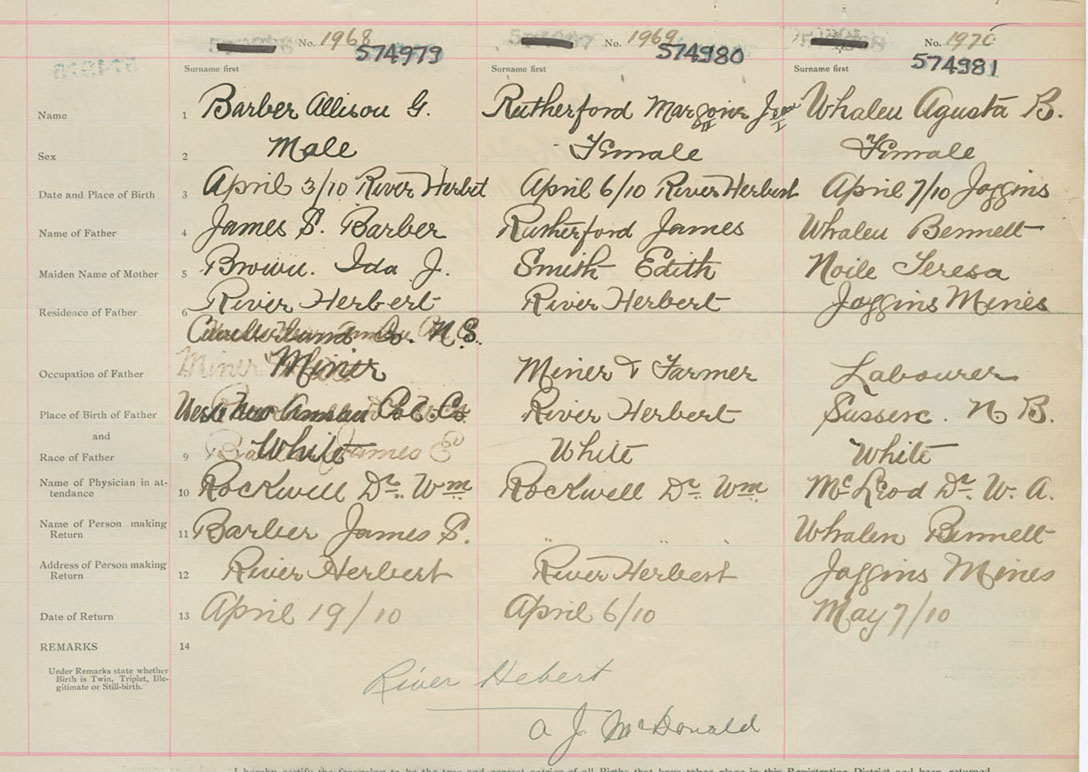 No. 1968 No. 1969 No. 1970
574979 574980 574981
Surname first Surname first Surname first
Name 1 Barber Allison G. Rutherford Margorie Jean Whalen Agusta B.
Sex 2 Male Female Female
Date and Place of Birth 3 April 3/10 River Herbert April 6/10 River Herbert April 7/10 Joggins
Name of Father 4 James S. Barber Rutherford James Whalen Bennett
Maiden Name of Mother 5 Brown. Ida J. Smith Edith Noile Teresa
Residence of Father 6 River Herbert River Herbert Joggins Mines
Cumberland Co. N.S.
Occupation of Father Miner Miner & Farmer Labourer
Place of Birth of Father West New Annan Col. Co. River Herbert Sussex. N B.
and
Race of Father 9 White White White
Name of Physician in at-
tendance 10 Rockwell Dr. Wm Rockwell Dr. Wm McLeod Dr. W. A.
Name of Person making
Return 11 Barber James S. Whalen Bennett
Address of Person making
Return 12 River Herbert River Herbert Joggins Mines
Date of Return 13 April 19/10 April 6/10 May 7/10
REMARKS 14
Under Remarks state whether
Birth is Twin, Triplet, Ille-
gitimate or Still-birth.
River Hebert
A J McDonald
I hereby certify the foregoing to be the true and correct entries of all Births that have taken place in this Registration District and been returned